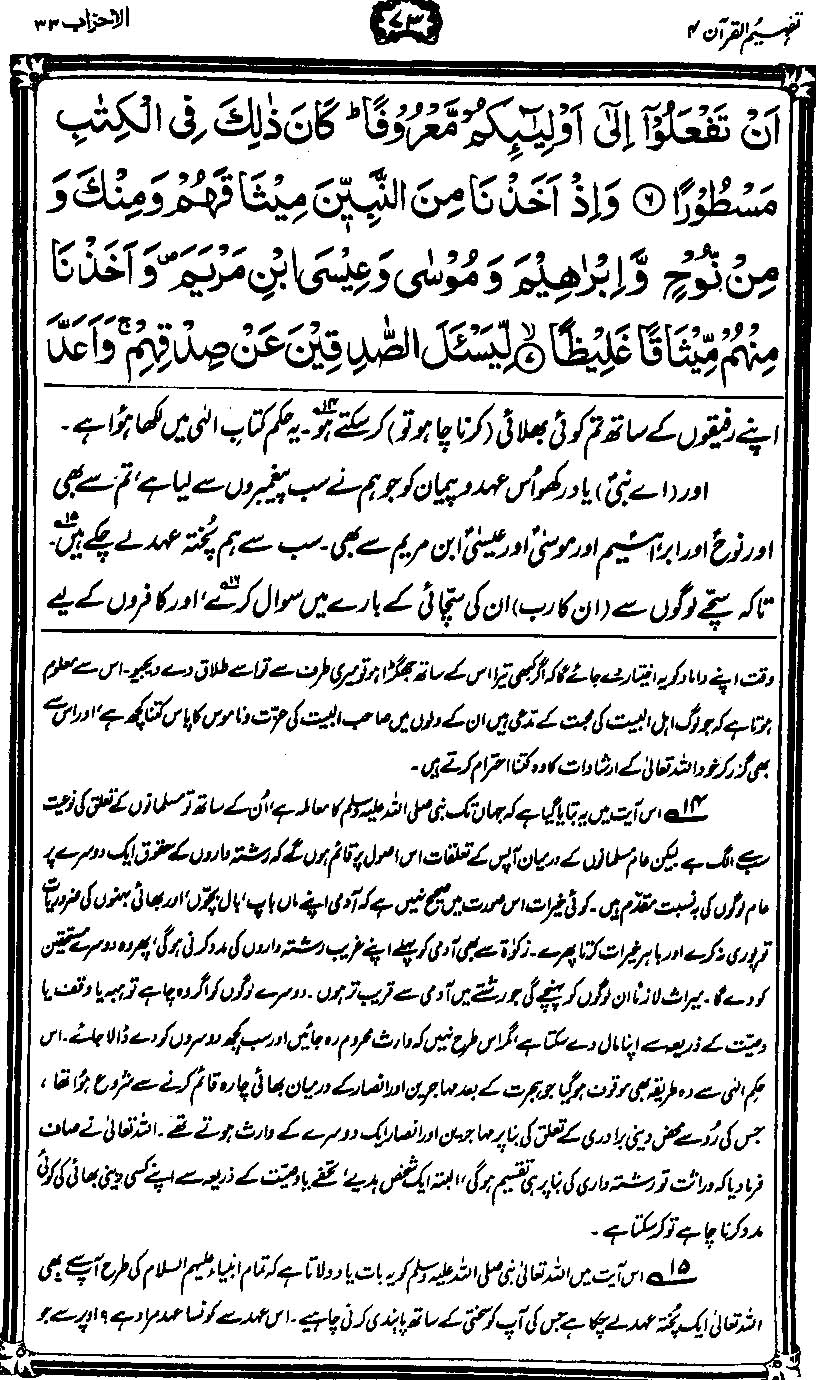 تفہیم القرآن ۴
۷۳
الاحزاب ۳۳
اَنْ تَفْعَلُوْٓا اِلٰٓى اَوْلِيٰٓئِكُمْ مَّعْرُوْفًا ؕ كَانَ ذٰلِكَ فِى الْكِتٰبِ
مَسْطُوْرًا ﴿۶﴾ وَاِذْ اَخَذْنَا مِنَ النَّبِيّٖنَ مِيْثَاقَهُمْ وَمِنْكَ وَ
مِنْ نُّوْحٍ وَّاِبْرٰهِيْمَ وَمُوْسٰى وَعِيْسَى ابْنِ مَرْيَمَ ۪ وَاَخَذْنَا
مِنْهُمْ مِّيْثَاقًا غَلِيْظًا ﴿۷﴾ۙ لِّيَسْـَٔلَ الصّٰدِقِيْنَ عَنْ صِدْقِهِمْ ۚ وَاَعَدَّ
اپنے رفیقوں کے ساتھ تم کوئی بھلائی (کرنا چاہو تو) کر سکتے ہو۱۴۔ یہ حکم کتابِ الٰہی میں لکھا ہوا ہے۔
اور (اے نبیؐ) یاد رکھو اُس عہد و پیمان کو جو ہم نے سب پیغمبروں سے لیا ہے، تم سے بھی
اور نوحؑ اور ابراہیمؑ اور موسیٰؑ اور عیسیٰؑ ابن مریم سے بھی۔ سب سے ہم پُختہ عہد لے چکے ہیں۱۵۔
تاکہ سچے لوگوں سے (ان کا رب) ان کی سچّائی کے بارے میں سوال کرے۱۶، اور کافروں کے لیے
وقت اپنے داماد کو یہ اختیار دے جائے گا کہ اگر کبھی تیرا اس کے ساتھ جھگڑا ہو تو میری طرف سے تو اسے طلاق دے دیجیو۔ اس سے معلوم
ہوتا ہے کہ جو لوگ اہل البیت کی محبت کے مدّعی ہیں ان کے دلوں میں صاحب البیت کی عزت و ناموس کا پاس کتنا کچھ ہے، اور اس سے
بھی گزر کر خود اللہ تعالیٰ کے ارشادات کا وہ کتنا احترام کرتے ہیں۔
۱۴ اس آیت میں یہ بتایا گیا ہے کہ جہاں تک نبی صلی اللہ علیہ وسلم کا معاملہ ہے، اُن کے ساتھ تو مسلمانوں کے تعلق کی نوعیت
سب سے الگ ہے لیکن عام مسلمانوں کے درمیان آپس کے تعلقات اس اصول پر قائم ہوں گے کہ رشتہ داروں کے حقوق ایک دوسرے پر
عام لوگوں کی بہ نسبت مقدّم ہیں۔ کوئی خیرات اس صورت میں صحیح نہیں ہے کہ آدمی اپنے ماں باپ، بال بچّوں، اور بھائی بہنوں کی ضروریات
تو پوری نہ کرے اور باہر خیرات کرتا پھرے۔ زکوٰۃ سے بھی آدمی کو پہلے اپنے غریب رشتہ داروں کی مدد کرنی ہوگی، پھر وہ دوسرے مستحقین
کو دے گا۔ میراث لازمًا ان لوگوں کو پہنچے گی جو رشتے میں آدمی سے قریب تر ہوں۔ دوسرے لوگوں کو اگر وہ چاہے تو ہبہ یا وقف یا
وصیّت کے ذریعہ سے اپنا مال دے سکتا ہے، مگر اس طرح نہیں کہ وارث محروم رہ جائیں اور سب کچھ دوسروں کو دے ڈالا جائے۔ اس
حکم الٰہی سے وہ طریقہ بھی موقوف ہوگیا جو ہجرت کے بعد مہاجرین اور انصار کے درمیان بھائی چارہ قائم کرنے سے شروع ہوا تھا،
جس کی رُو سے محض دینی برادری کے تعلق کی بنا پر مہاجرین اور انصار ایک دوسرے کے وارث ہوتے تھے۔ اللہ تعالیٰ نے صاف
فرما دیا کہ وراثت تو رشتہ داری کی بنا پر ہی تقسیم ہوگی، البتہ ایک شخص ہدیے، تحفے یا وصیّت کے ذریعہ سے اپنے کسی دینی بھائی کی کوئی
مدد کرنا چاہے تو کر سکتا ہے۔
۱۵ اس آیت میں اللہ تعالیٰ نبی صلی اللہ علیہ وسلم کو یہ بات یاد دلاتا ہے کہ تمام انبیاء علیہم السلام کی طرح آپ سے بھی
اللہ تعالیٰ ایک پُختہ عہد لے چکا ہے جس کی آپ کو سختی کے ساتھ پابندی کرنی چاہیے۔ اس عہد سے کونسا عہد مراد ہے؟ اوپر سے جو